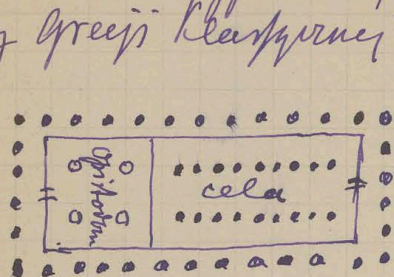 z Grecji Klasycznej
Opistodom
cela